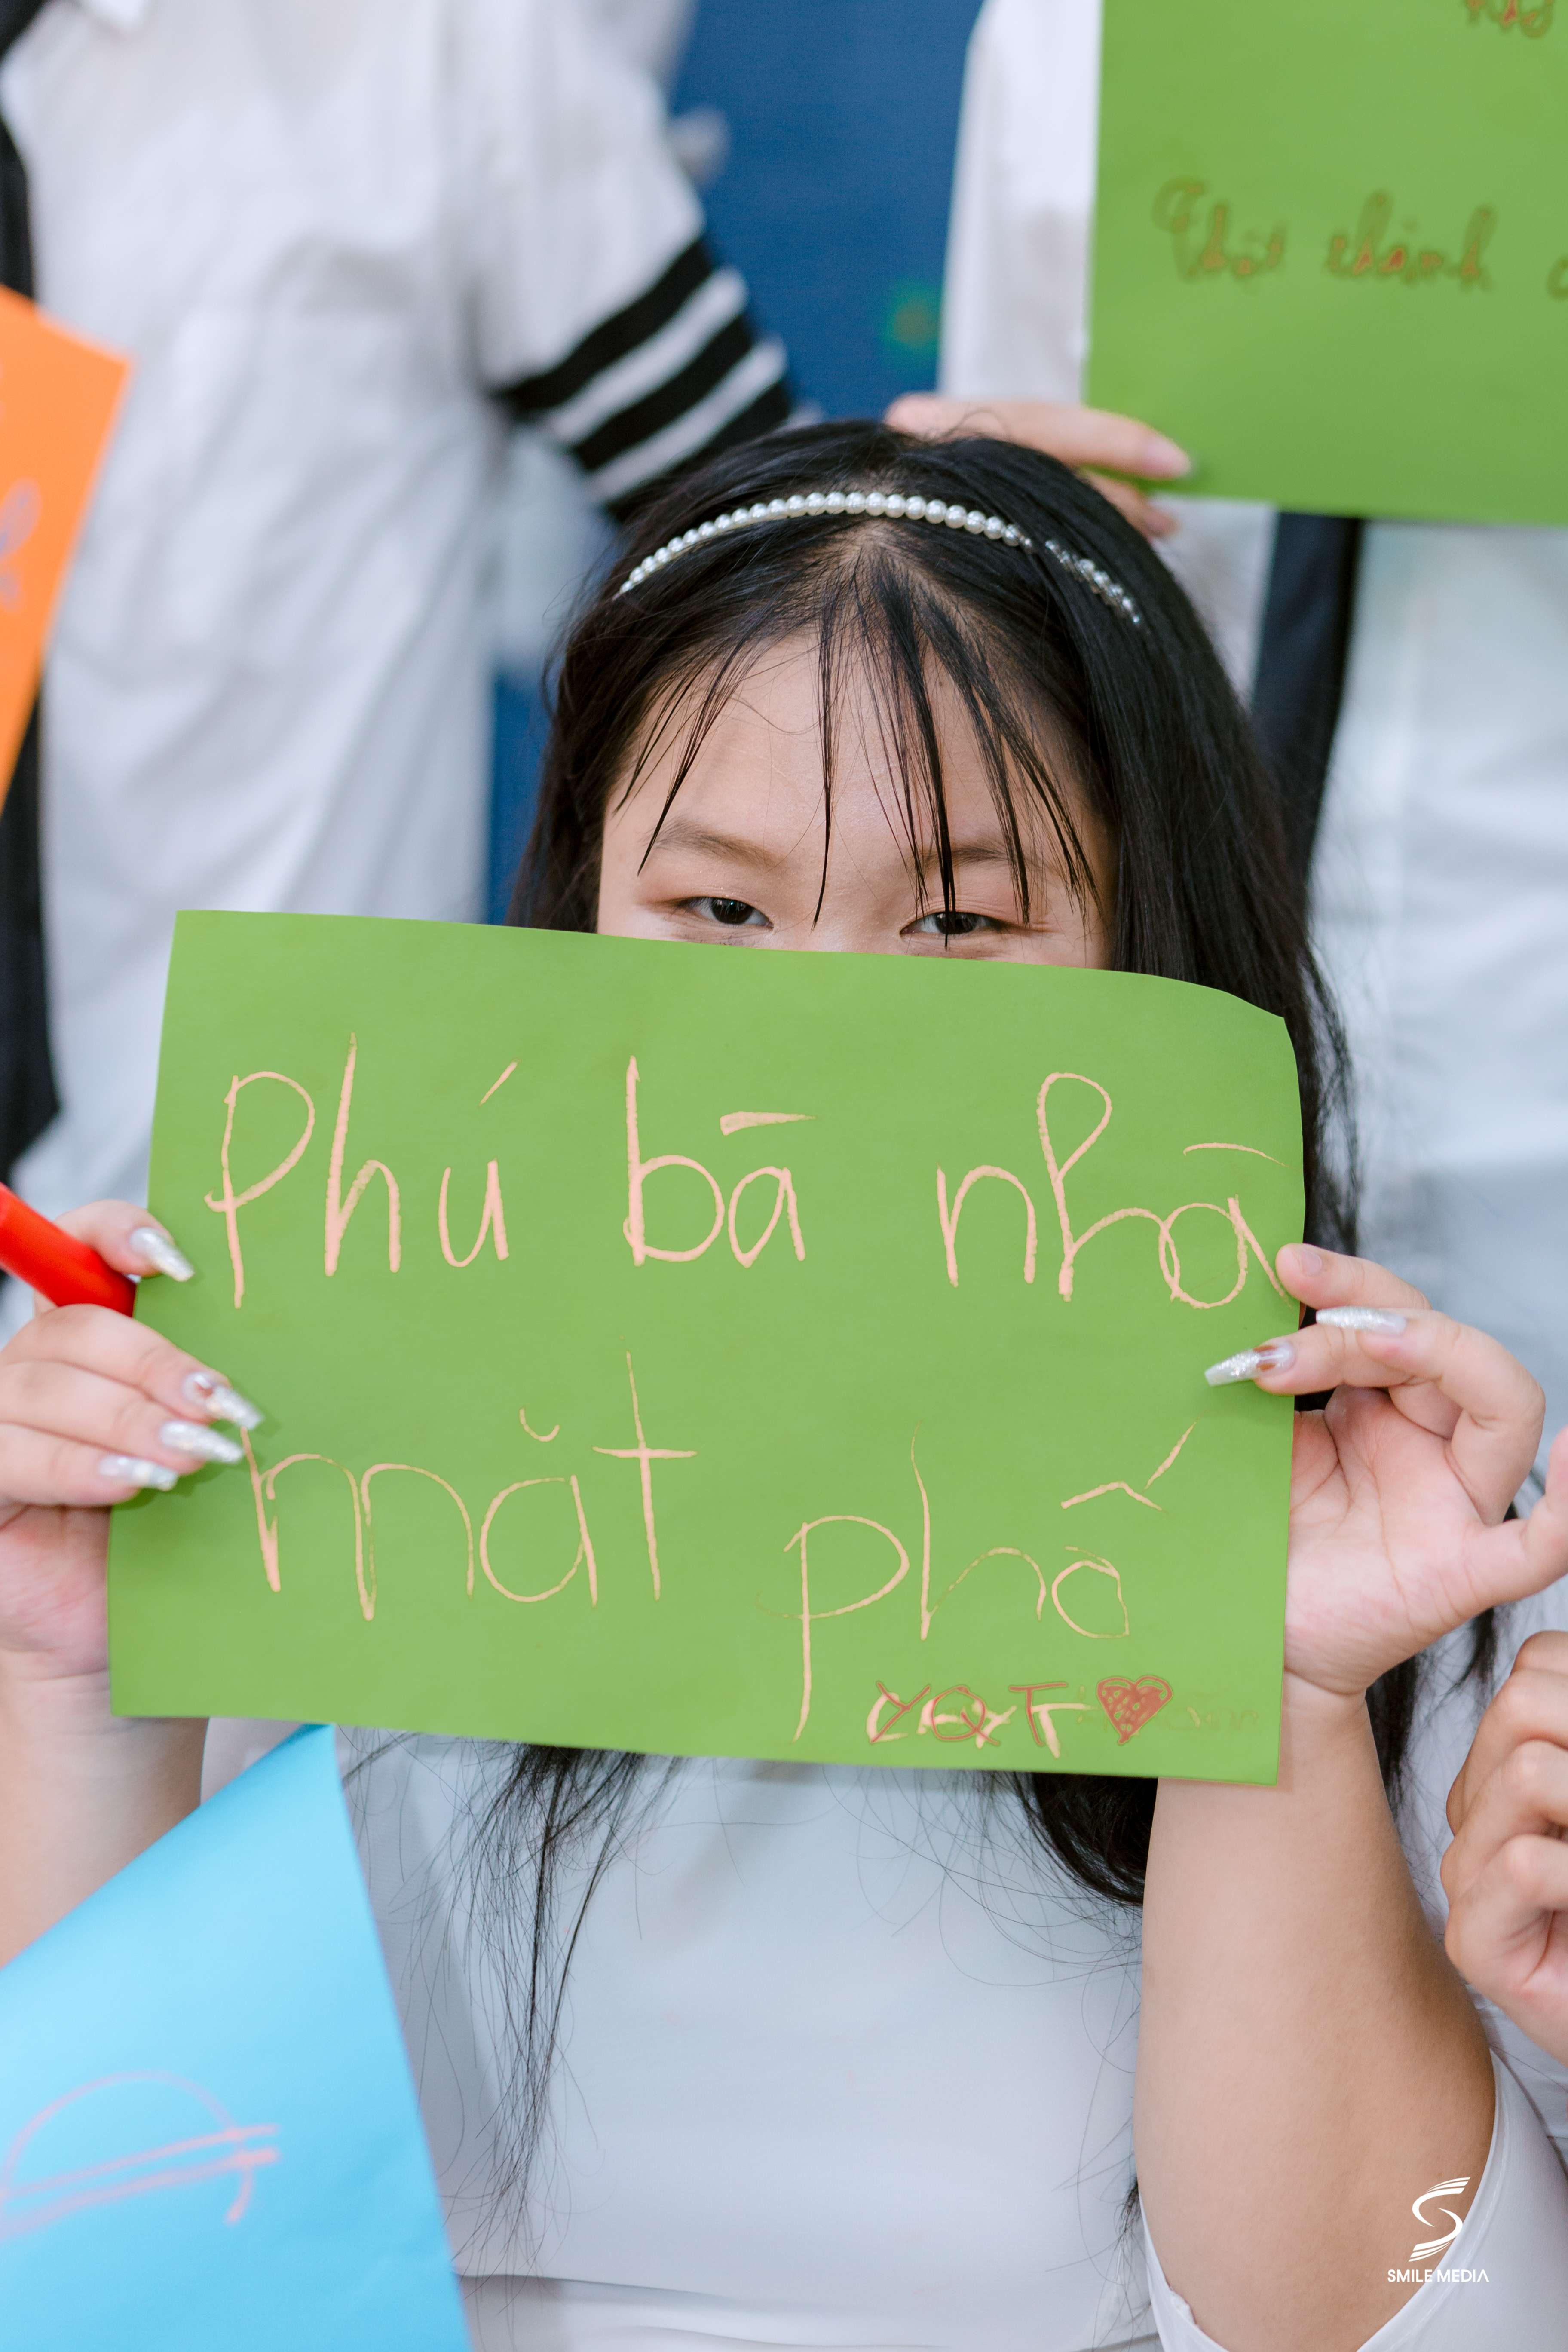 Thật thành
Phú bà nhà
mặt phố
YQT
SMILE MEDIA